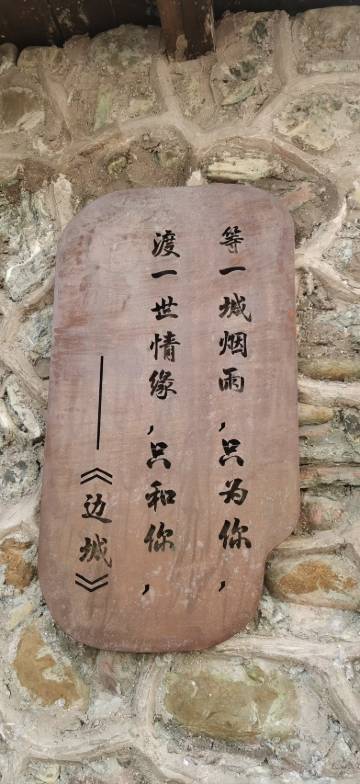 等一城烟雨，只为你，
渡一世情缘，只和你，
——《边城》